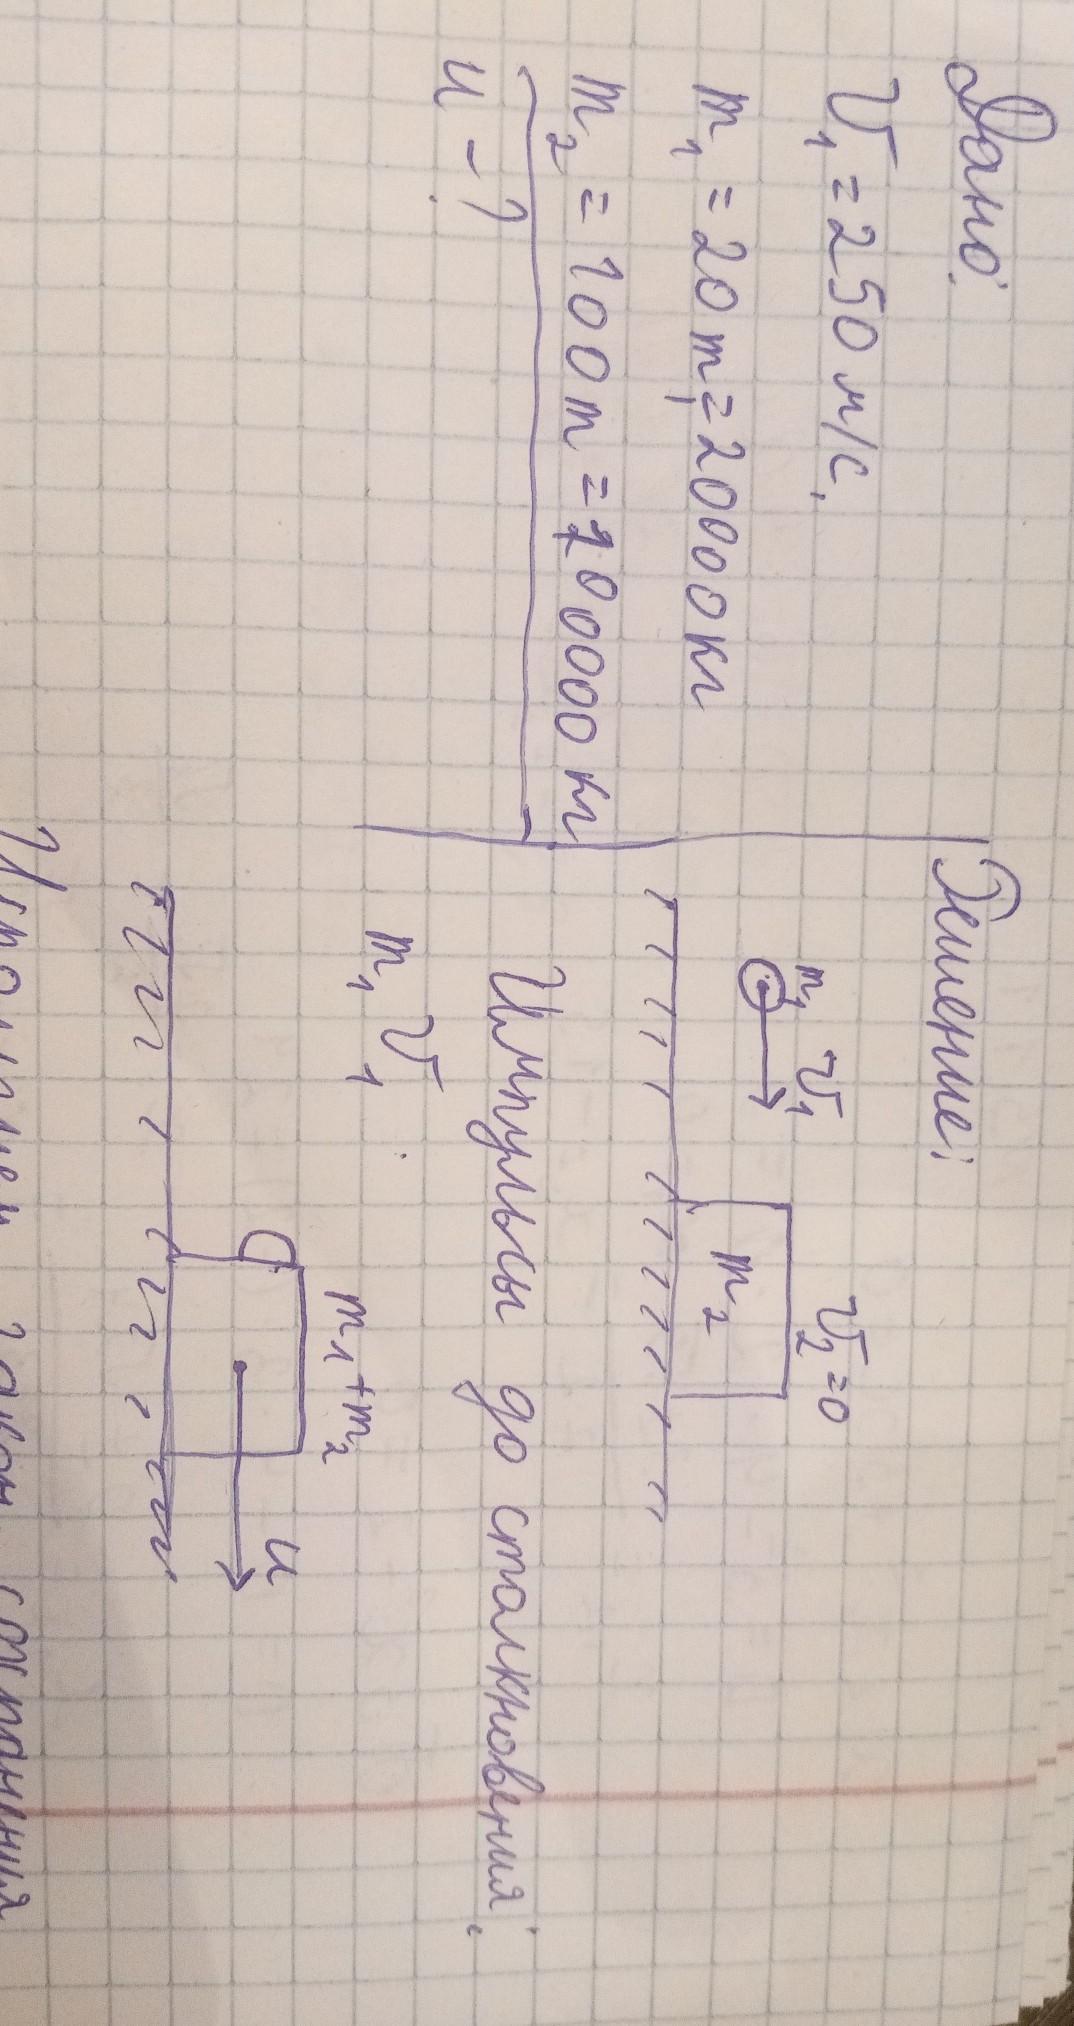 Дано:
V₁ = 250 м/с,
m₁ = 20 т, = 20000 кг
m₂ = 100 т = 100000 кг
u - ?
Решение:
m₁ V₁
V₂ = 0
m₂
Импульсы до столкновения:
m₁ V₁
m₁ + m₂
u